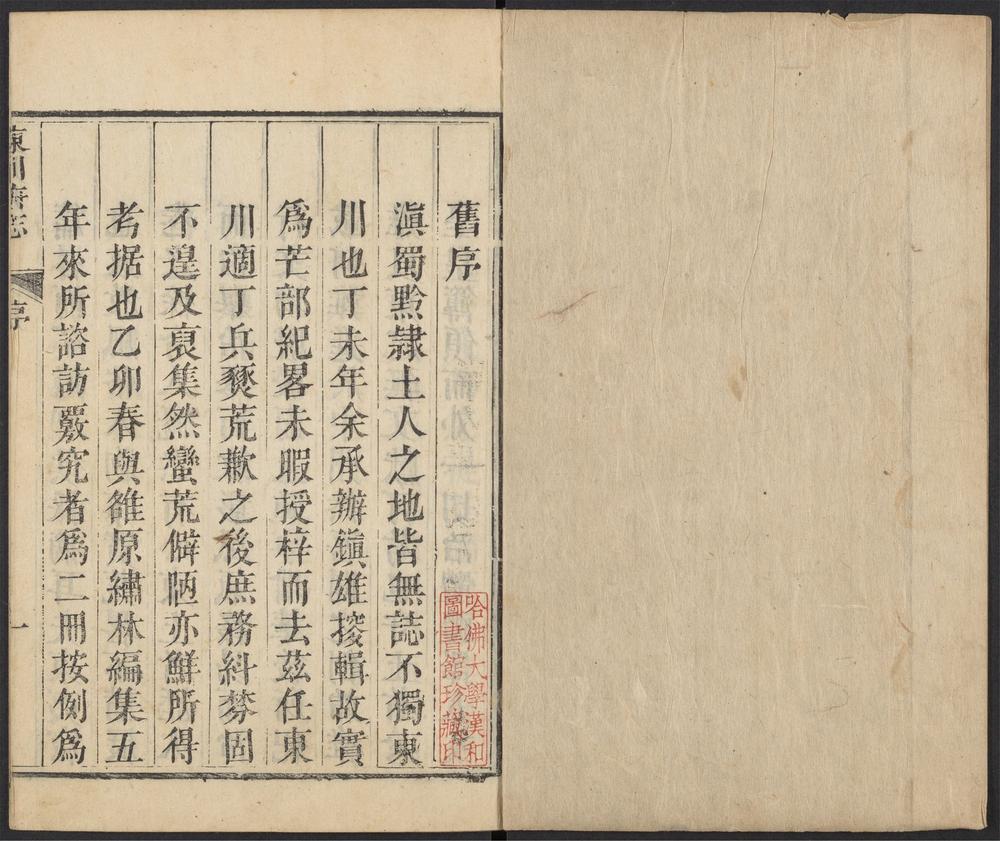 舊序
滇蜀黔隷土人之地皆無誌不獨東
川也丁未年余承辦鎮雄搜輯故實
爲芒部紀畧未暇授梓而去茲任東
川適丁兵燹荒歉之後庶務糾棼固
不遑及裒集然蠻荒僻陋亦鮮所得
考据也乙卯春與雒原繡林編集五
年來所諮訪覈究者爲二冊按例爲
東川府志
序
一
哈佛大學漢和
圖書館珍藏印